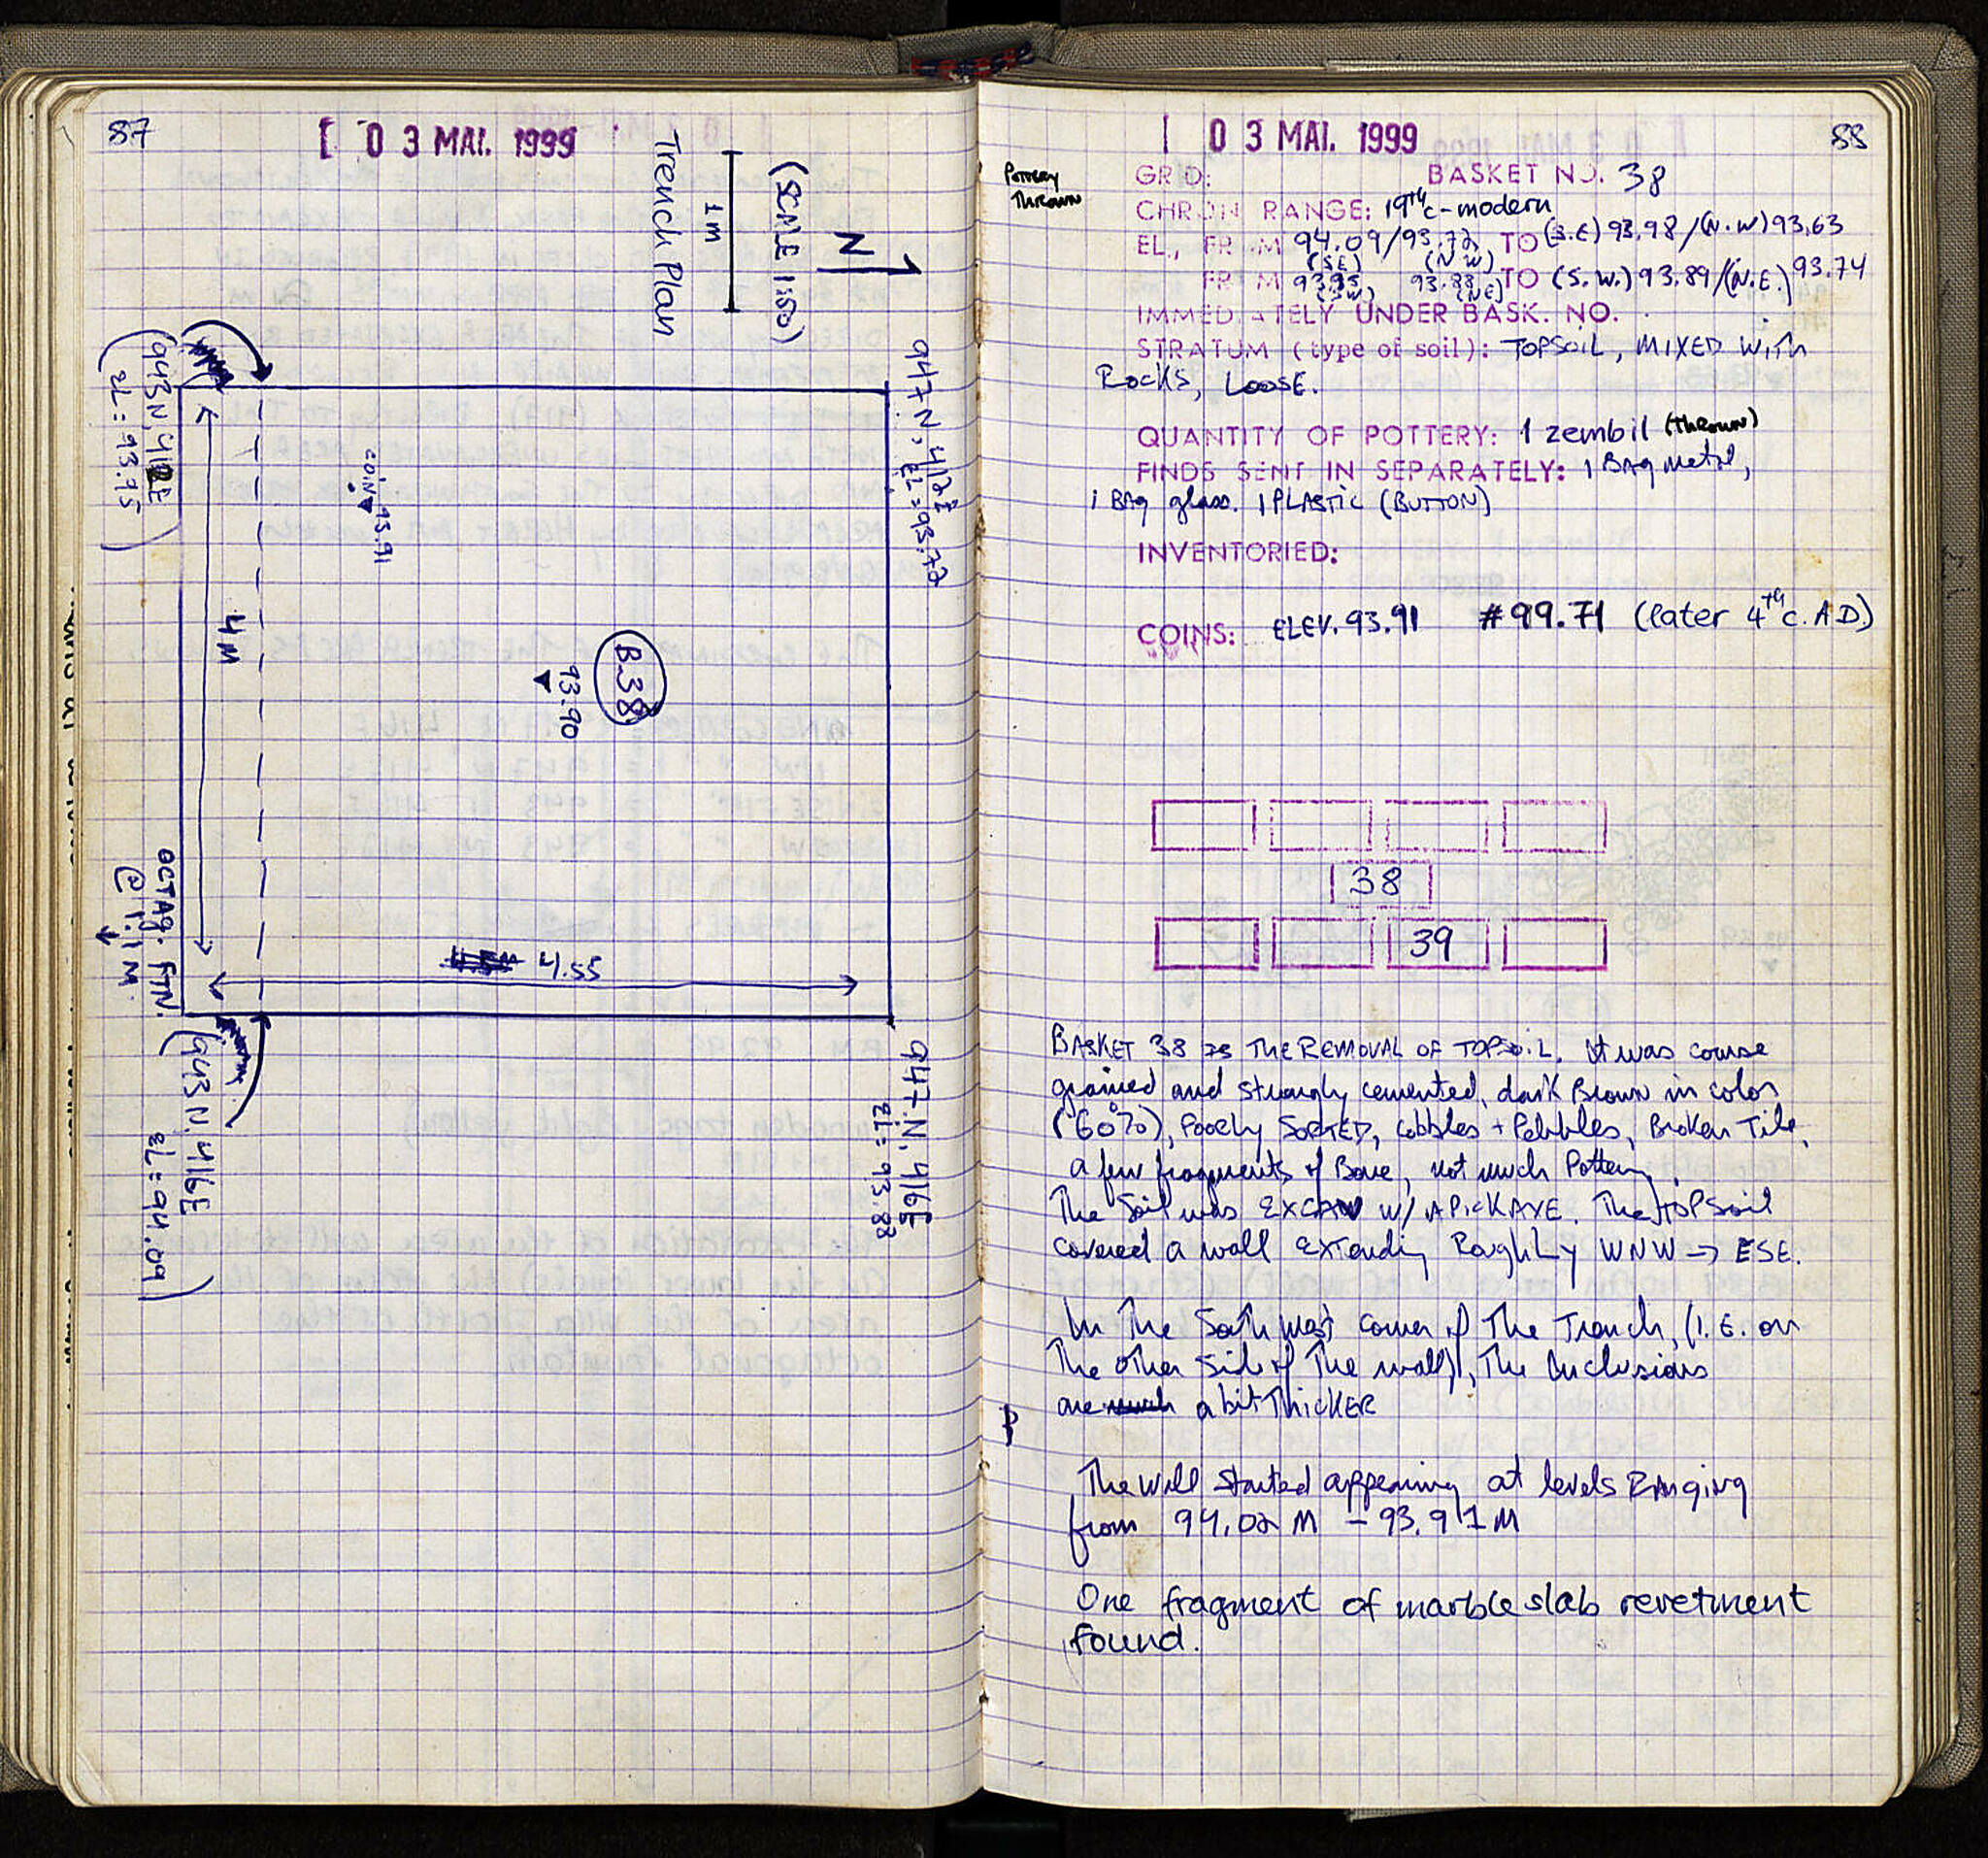 87
03 MAI. 1999
Trench Plan
1 M
(SCALE 1:50)
N
947 N, 412E
EL = 93.72
(943 N, 412E
EL = 93.95)
COIN 93.91
4 M
B.38
93.90
4.55
OCTAG. FTN.
@ 1.1 M.
(943 N, 416E
EL = 94.09)
947 N, 416E
EL = 93.83
03 MAI. 1999
88
POTTERY
THROWN
GRID: BASKET NO. 38
CHRON RANGE: 19TH c-modern
EL., FROM 94.09/93.72 TO (S.E) 93.98/(N.W) 93.63
(SE) (NW)
FROM 93.95 93.83 TO (S.W.) 93.89/(N.E.) 93.74
(SW) (NE)
IMMEDIATELY UNDER BASK. NO.
STRATUM (type of soil): TOPSOIL, MIXED WITH
ROCKS, LOOSE.
QUANTITY OF POTTERY: 1 zembil (THROWN)
FINDS SENT IN SEPARATELY: 1 BAg Metal,
1 BAg glass. 1 PLASTIC (BUTTON)
INVENTORIED:
COINS: ELEV. 93.91 #99.71 (later 4TH c. A.D.)
38
39
BASKET 38 is THE REMOVAL OF TOPSOIL. It was course
grained and strongly cemented, dark Brown in color
(60%), Poorly SORTED, cobbles + Pebbles, Broken Tile,
a few fragments of Bone, not much Pottery.
The Soil was EXCAV w/ A PICKAXE. The TOPSoil
covered a wall Extending Roughly WNW → ESE.
In The South west corner of The Trench, (I.E. on
The other side of The wall), The Inclusions
are much a bit THICKER
The Wall started appearing at levels RANging
from 94.02 M - 93.91 M
One fragment of marble slab revetment
found.